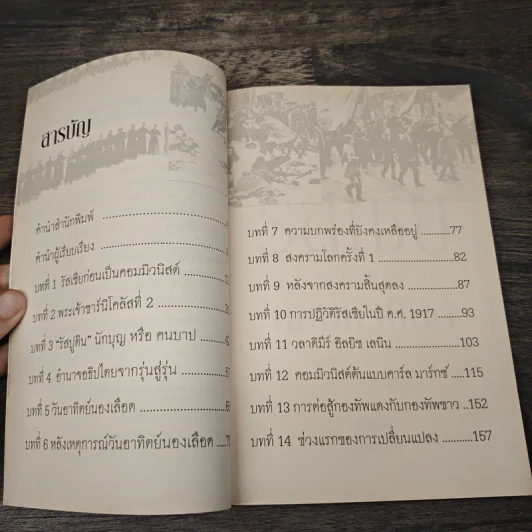 สารบัญ
คำนำสำนักพิมพ์
คำนำผู้เรียบเรียง
บทที่ 1 รัสเซียก่อนเป็นคอมมิวนิสต์
บทที่ 2 พระเจ้าซาร์นิโคลัสที่ 2
บทที่ 3 "รัสปูติน" นักบุญ หรือ คนบาป
บทที่ 4 อำนาจอธิปไตยจากรุ่นสู่รุ่น
บทที่ 5 วันอาทิตย์นองเลือด
บทที่ 6 หลังเหตุการณ์วันอาทิตย์นองเลือด
บทที่ 7 ความบกพร่องที่ยังคงเหลืออยู่ ..........77
บทที่ 8 สงครามโลกครั้งที่ 1 ....................82
บทที่ 9 หลังจากสงครามสิ้นสุดลง .............87
บทที่ 10 การปฏิวัติรัสเซียในปี ค.ศ. 1917 .......93
บทที่ 11 วลาดิมีร์ อิลยิช เลนิน .............103
บทที่ 12 คอมมิวนิสต์ต้นแบบคาร์ล มาร์กซ์ ....115
บทที่ 13 การต่อสู้กองทัพแดงกับกองทัพขาว ..152
บทที่ 14 ช่วงแรกของการเปลี่ยนแปลง ..........157